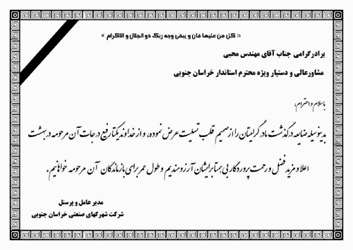 « کل من علیها فان و یبقی وجه ربک ذو الجلال و الاکرام »
برادرگرامی جناب آقای مهندس محبی
مشاورعالی و دستیار ویژه محترم استاندار خراسان جنوبی
با سلام و احترام،
بدینوسیله ضایعه درگذشت مادر گرامیتان را از صمیم قلب تسلیت عرض نموده، و از خداوند یکتا رفیع درجات آن مرحومه در بهشت
اعلا و مزید فضل و رحمت پروردگار بی همتا برایشان آرزومندیم و طول عمر برای بازماندگان آن مرحومه خواهانیم.
مدیر عامل و پرسنل
شرکت شهرکهای صنعتی خراسان جنوبی